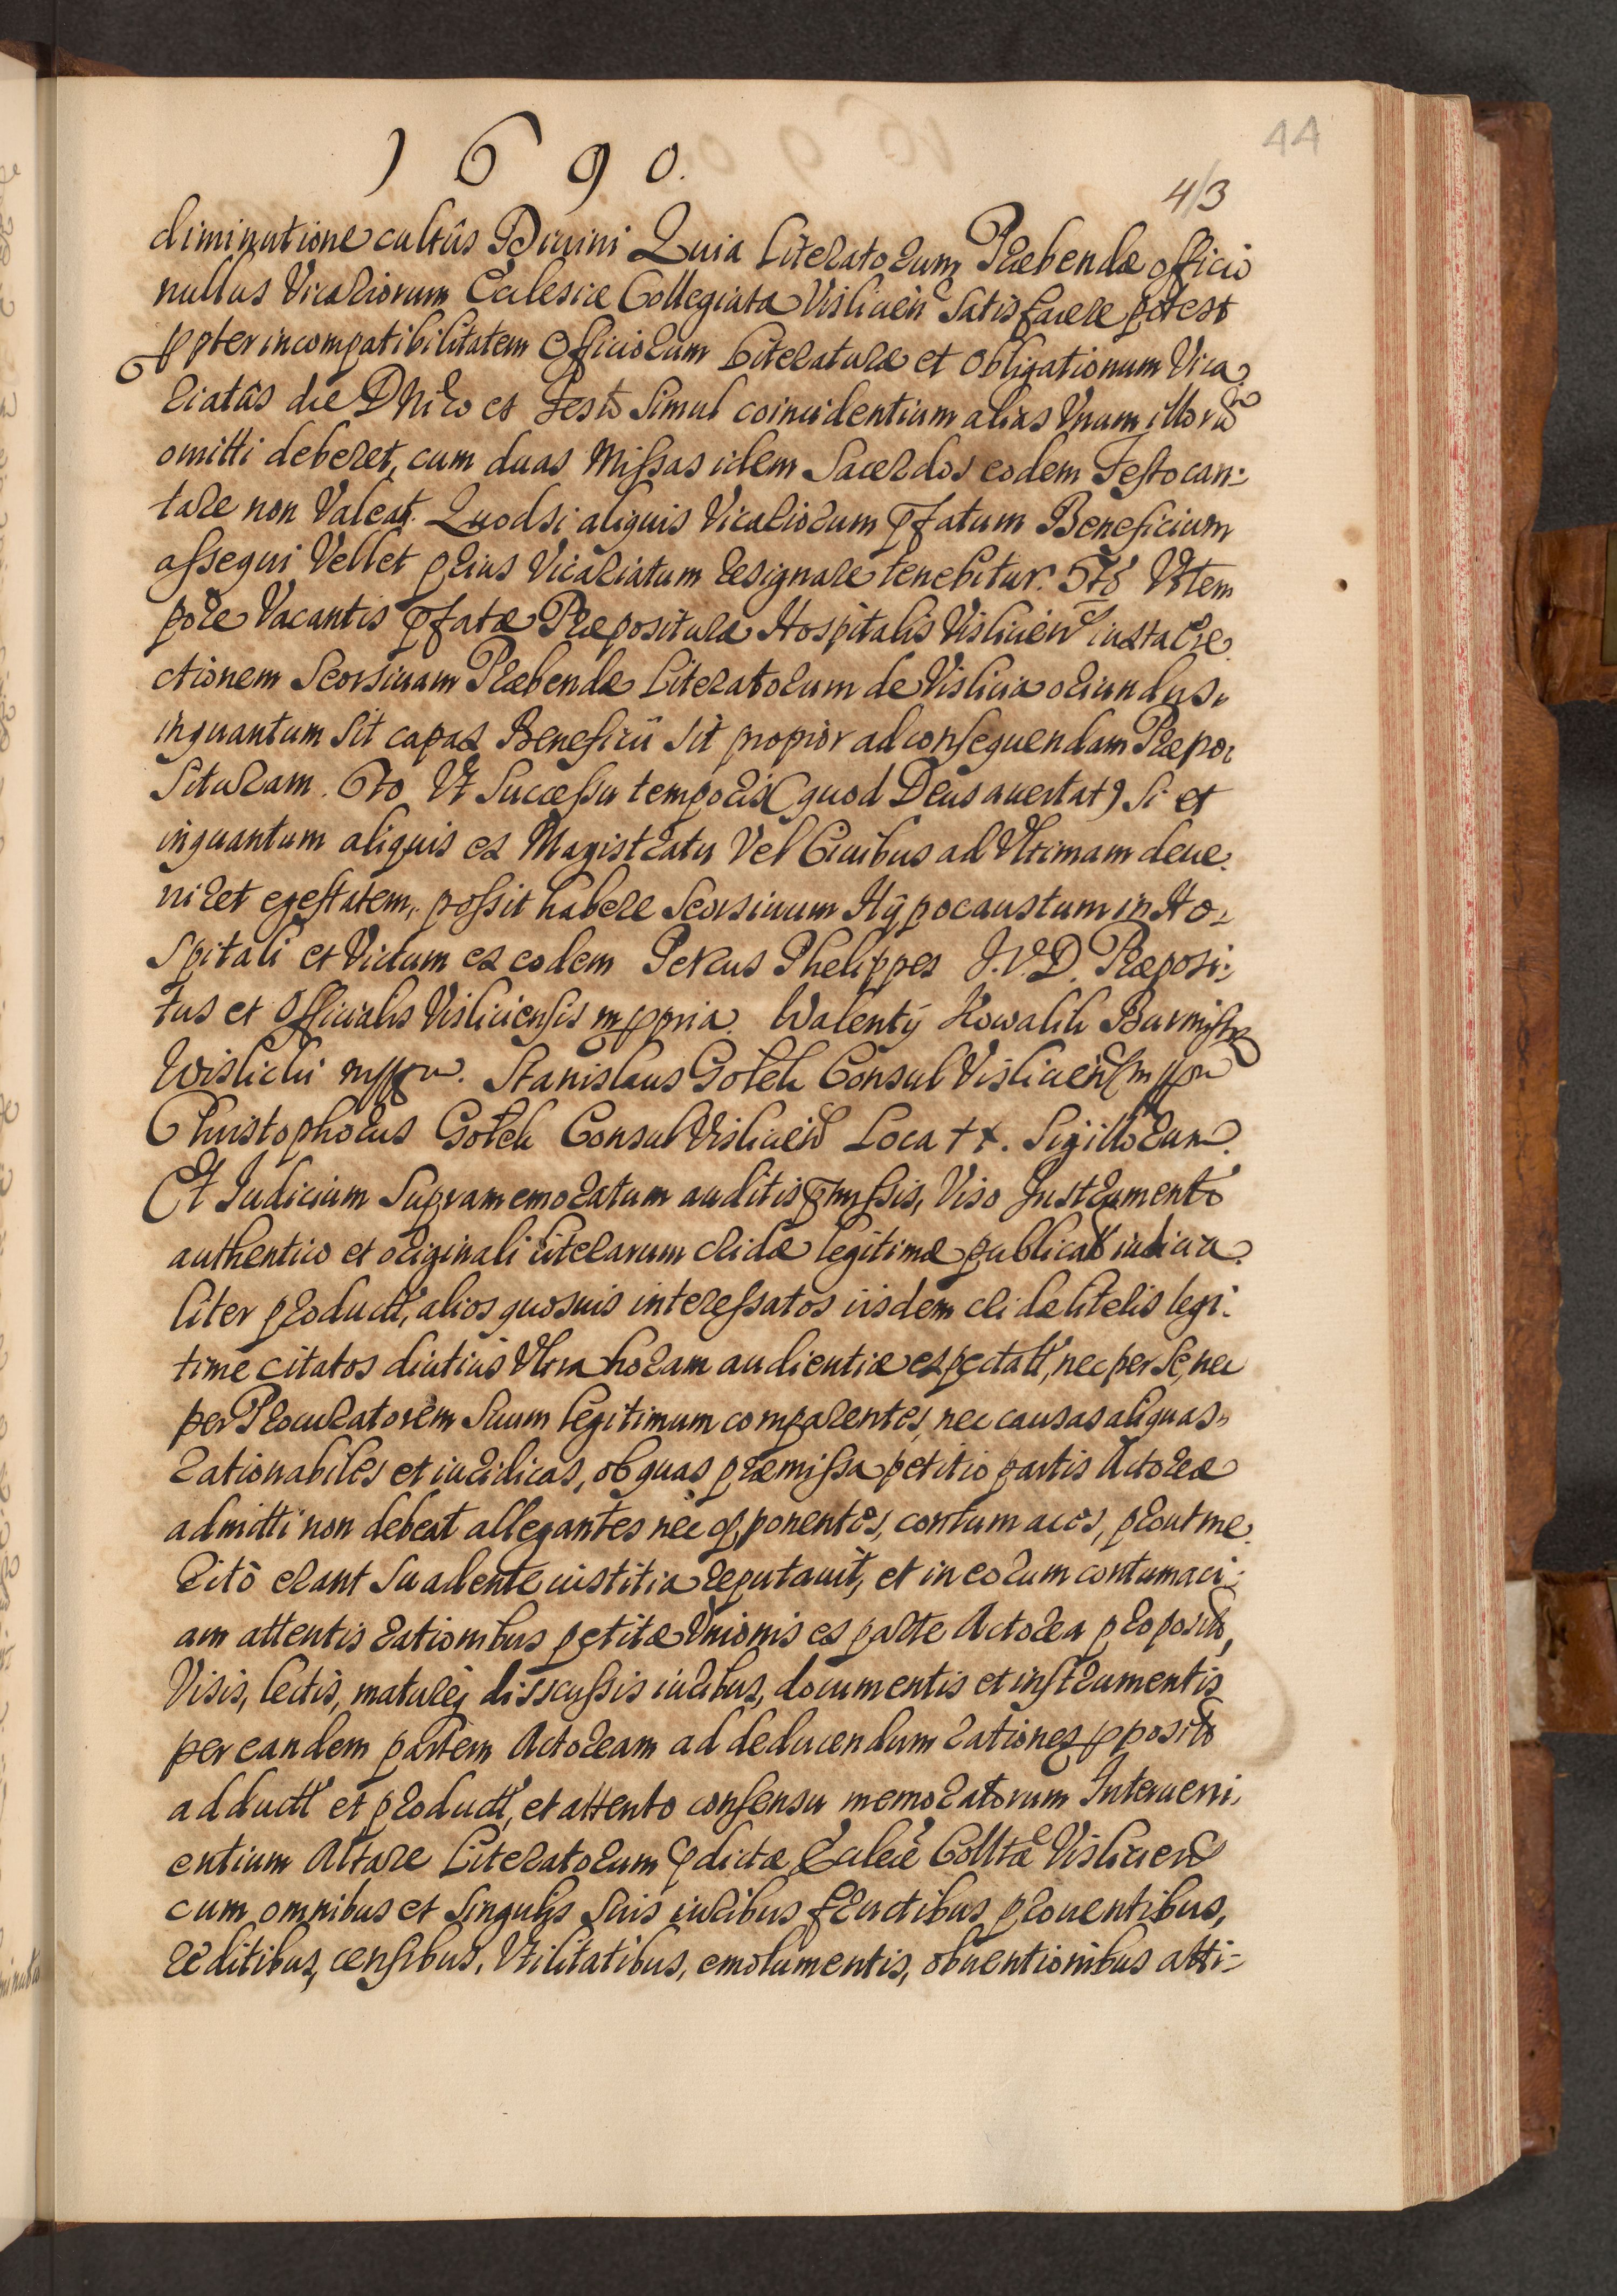 1690.
44
43
diminutione cultûs Diuini Quia Literatorum Præbendæ officio
nullus Vicariorum Ecclesiæ Collegiatæ Vislicień Satisfacere potest
ppter incompatibilitatem Officiorum Literaturæ et obligationum Vica
riatûs die Dnico et Festo Simul coincidentium alias Vnum illorũ
omitti deberet, cum duas Missas idem Sacerdos eodem Festo can-
tare non Valeat. Quodsi aliquis Vicariorum pfatum Beneficium
assequi Vellet prius Vicariatum resignare tenebitur. 5to Vt tem
pore Vacantis pfatæ Præpositure Hospitalis Vislicień iuxta Ere
ctionem Seorsiuam Præbendæ Literatorum de Vislicia oriundus
inquantum Sit capax Beneficii Sit propior ad consequendam Præpo
situram. 6to Vt Successu temporis (quod Deus auertat) Si et
inquantum aliquis ex Magistratu Vel Ciuibus ad Vltimam deue
niret egestatem, possit habere Seorsiuum Hypocaustum in Ho-
spitali et Victum ex eodem Petrus Phelippes J.V.D. Præposi-
tus et Officialis Visliciensis mppria. Walenty Kowalik Burmistrz
Wislicki mppr. Stanislaus Gołek Consul Vislicień mppr
Christophorus Gołek Consul Vislicień Loca ++. Sigillorum.
Et Iudicium Supramemoratum auditis pmissis, Viso Instrumento
authentico et originali literarum cridæ legitimæ publicat iudicia
liter product, alios quosuis interessatos iisdem cridæ literis legi-
time citatos diutius Vltra horam audientiæ expectat, nec per Se, nec
per Procuratorem Suum legitimum comparentes, nec causas aliquas
rationabiles et iuridicas, ob quas præmissa petitio partis Actoreæ
admitti non debeat allegantes nec opponentes, contumaces, prout me
ritò erant Suadente iustitia reputauit, et in eorum contumaci-
am attentis rationibus petitæ Vnionis ex parte Actorea proposit,
Visis, lectis, matureq discussis iuribus, documentis et instrumentis
per eandem partem Actoream ad deducendum rationes pposit
adduct et product, et attento consensu memoratorum Interueni-
entium Altare Literatorum pdictæ Ecclæ Colltæ Vislicień
cum omnibus et Singulis Suis iuribus fructibus prouentibus,
reditibus, censibus, Vtilitatibus, emolumentis, obuentionibus atti-